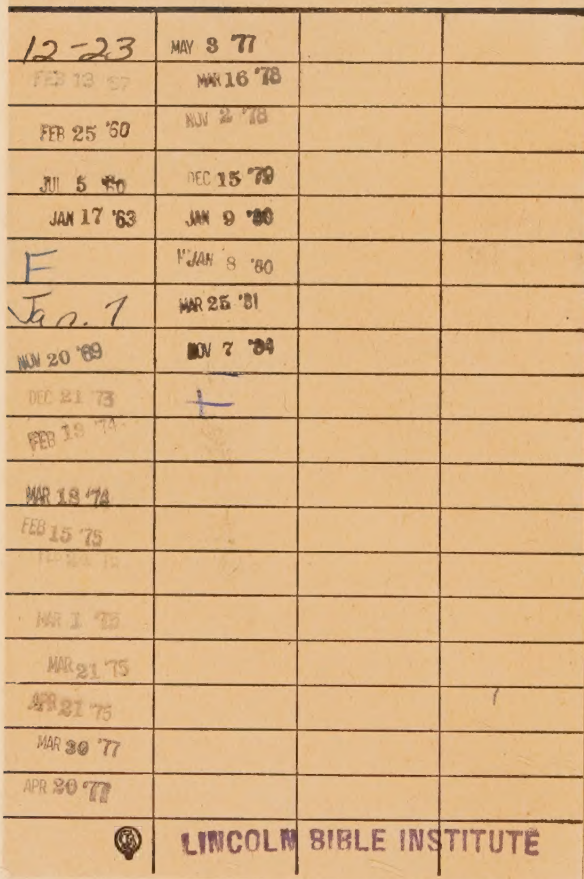 12-23
FEB 13
FEB 25 '60
JUL 5 '60
JAN 17 '63
F
Jan. 7
NOV 20 '69
DEC 21 73
FEB 13 '74
MAR 18 '74
FEB 15 '75
MAR 1 '75
MAR 21 '75
APR 21 '75
MAR 30 '77
APR 20 '77
MAY 3 '77
MAR 16 '78
NOV 2 '78
DEC 15 '79
JAN 9 '80
JAN 8 '80
MAR 25 '81
NOV 7 '84
LINCOLN BIBLE INSTITUTE